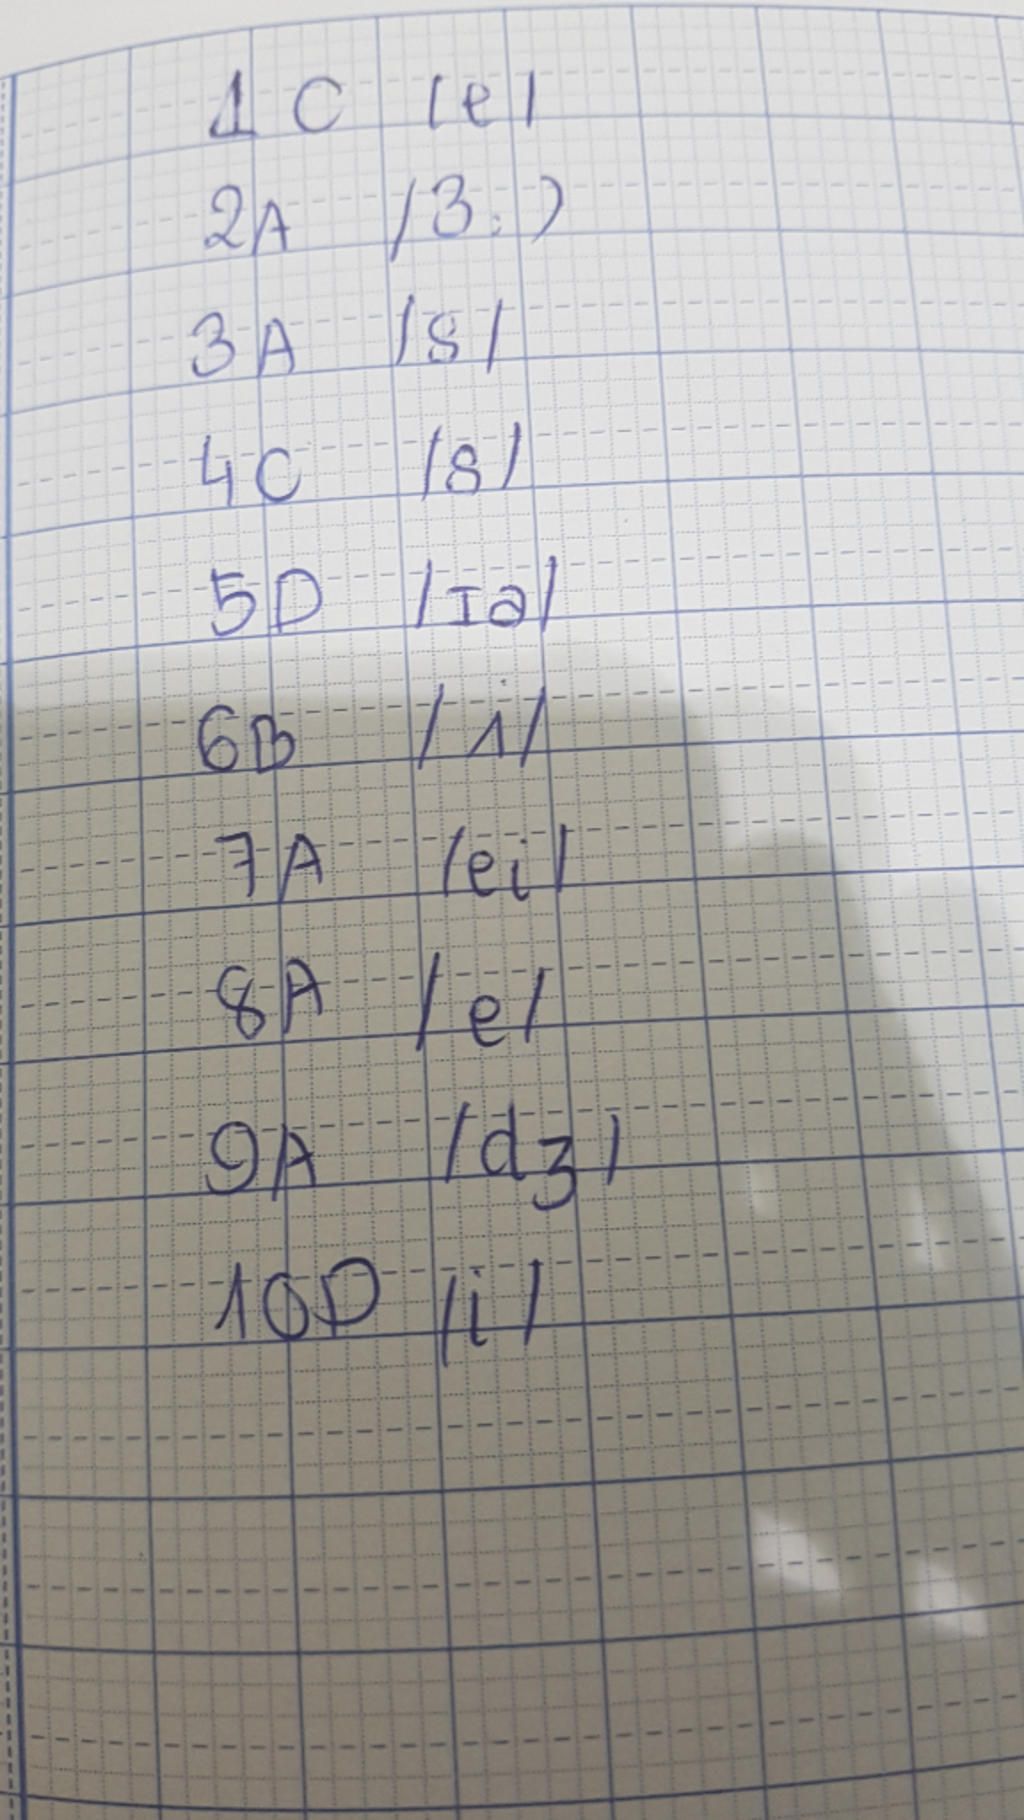 1 C /e/
2A /3:)
3A /s/
4C /s/
5D /Iə/
6B /ʌ/
7A /ei/
8A /e/
9A /dʒ/
10D /i/